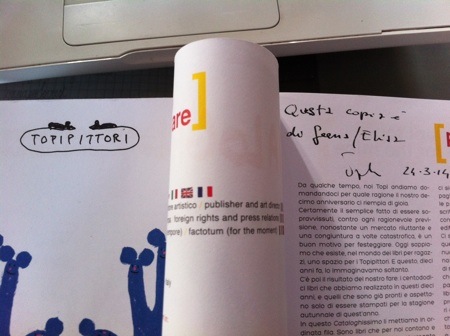 TOPIPITTORI
are]
me artistico / publisher and art director
foreign rights and press relations
factotum (for the moment)
Questa copia è
di
24-3-14
Da qualche tempo, noi Topi andiamo do-
mandandoci per quale ragione il nostro de-
cimo anniversario ci riempia di gioia.
Certamente il semplice fatto di essere so-
pravvissuti, contro ogni ragionevole previ-
sione, nonostante un mercato riluttante e
una congiuntura a volte catastrofica, è un
buon motivo per festeggiare. Oggi sappia-
mo che esiste, nel mondo dei libri per ragaz-
zi, uno spazio per i Topipittori. E questo, dieci
anni fa, lo immaginavamo soltanto.
C'è poi il risultato del nostro fare: i centodod-
ci libri che abbiamo realizzato in questi dieci
anni, e quelli che sono già pronti e aspetta-
no solo di essere stampati per la stagione
autunnale di quest'anno.
In questo Catalogissimo li mettiamo in or-
dinata fila. Sono libri che per noi contano